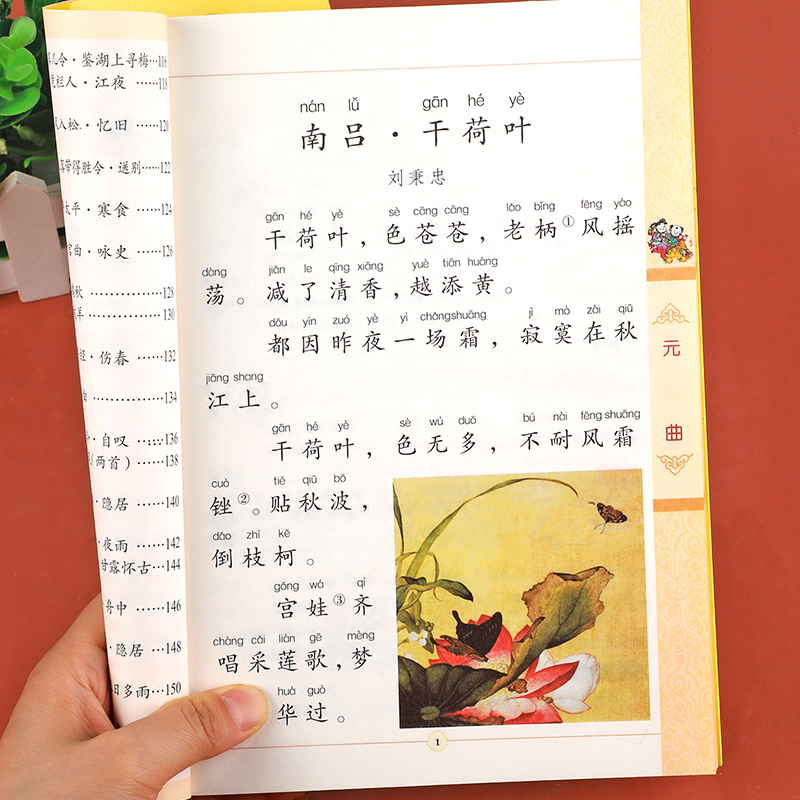 鉴湖上寻梅…116
栏人·江夜……118
入松·忆旧……120
落带得胜令·送别……122
太平·寒食……124
宫曲·咏史……126
秋……128
羊……130
·伤春……132
……134
·自叹……136
(两首)……138
·隐居……140
·夜雨……142
甘露怀古……144
舟中……146
·隐居……148
日多雨……150
nán lǚ gān hé yè
南吕·干荷叶
刘秉忠
gān hé yè sè cāng cāng lǎo bǐng fēng yáo
干荷叶，色苍苍，老柄①风摇
dàng jiǎn le qīng xiāng yuè tiān huáng
荡。减了清香，越添黄。
dōu yīn zuó yè yì chǎng shuāng jì mò zài qiū
都因昨夜一场霜，寂寞在秋
jiāng shang
江上。
gān hé yè sè wú duō bú nài fēng shuāng
干荷叶，色无多，不耐风霜
cuò tiē qiū bō
锉②。贴秋波，
dǎo zhī kē
倒枝柯。
gōng wá qí
宫娃③齐
chàng cǎi lián gē mèng
唱采莲歌，梦
huá guò
华过。
1
元曲